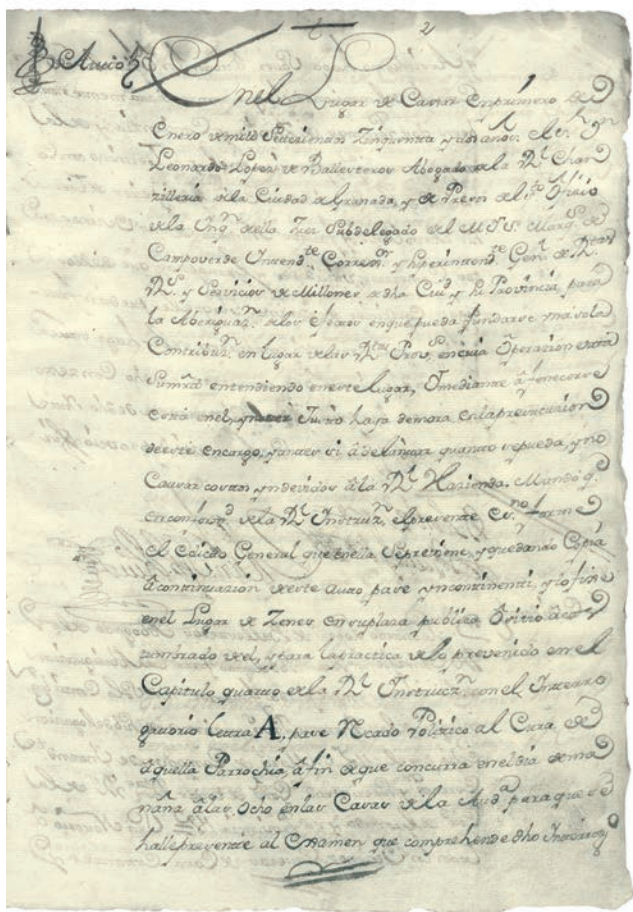 2
Auto
En el Lugar de Caxar en primero de
Enero de mill Setecientos Zinquenta y dos años. el Sr. Dn
Leonardo Lopez de Ballesteros Abogado de la Rl Chan
zilleria de la Ciudad de Granada, y de Presos del Sto Oficio
de la Inqn de ella Juez Subdelegado del M. I. S. Marqs. de
Campoverde Intendte Corregor y Superintendte Genl de Rtas
Rs. y Servicios de Millones de dha Ciud y su Provincia para
la Aberiguazn de los efectos en que pueda fundarse una sola
Contribuzn en lugar de las Rtas Provs en cuia Operazion está
Summd entendiendo en este lugar, mediante a fenecerse
en el, y no ser Justo haya demora en la prevacuaion
de este encargo, y antes si adelantar quanto se pueda, y no
Causar costas yndevidas a la Rl Hazienda. Mando q
en conformd de la Rl Instruzn el presente Esno forme
el Edicto General que en ella se previene, y quedando Copia
a continuazion de este auto pase yncontinenti, y lo fixe
en el Lugar de Zenes en su plaza publica o sitio acos
tumbrado de el, y para la practica de lo prevenido en el
Capitulo quarto de la Rl Instruzn con el Interro
gatorio letra A, pase Recado Politico al Cura de
aquella Parrochia, a fin de que concurra en el dia de ma
ñana a las Ocho en las Casas de la Auda para que se
halle presente al Examen que comprehende dho Interrog